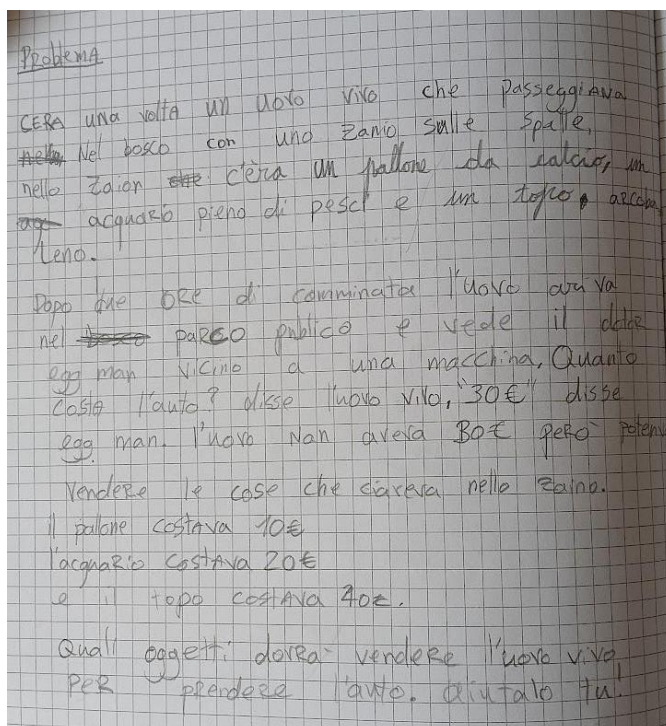 Problema
CERA una volta un uovo vivo che passeggiava
Nel bosco con uno zanio sulle spalle,
nello zaion c'èra un pallone da calcio, un
acquario pieno di pesci e un topo arcoba
leno.
Dopo due ore di comminata l'uovo ariva
nel parco publico e vede il dotor
egg man vicino a una macchina, Quanto
costa l'auto? disse l'uovo vivo, "30€" disse
egg man. l'uovo Nan aveva 30€ però poteva
vendere le cose che ciaveva nello zaino.
il pallone costava 10€
l'acquario costava 20€
e il topo costava 40€.
Quali oggetti dovra vendere l'uovo vivo
per prendere l'auto. aiutalo tu!